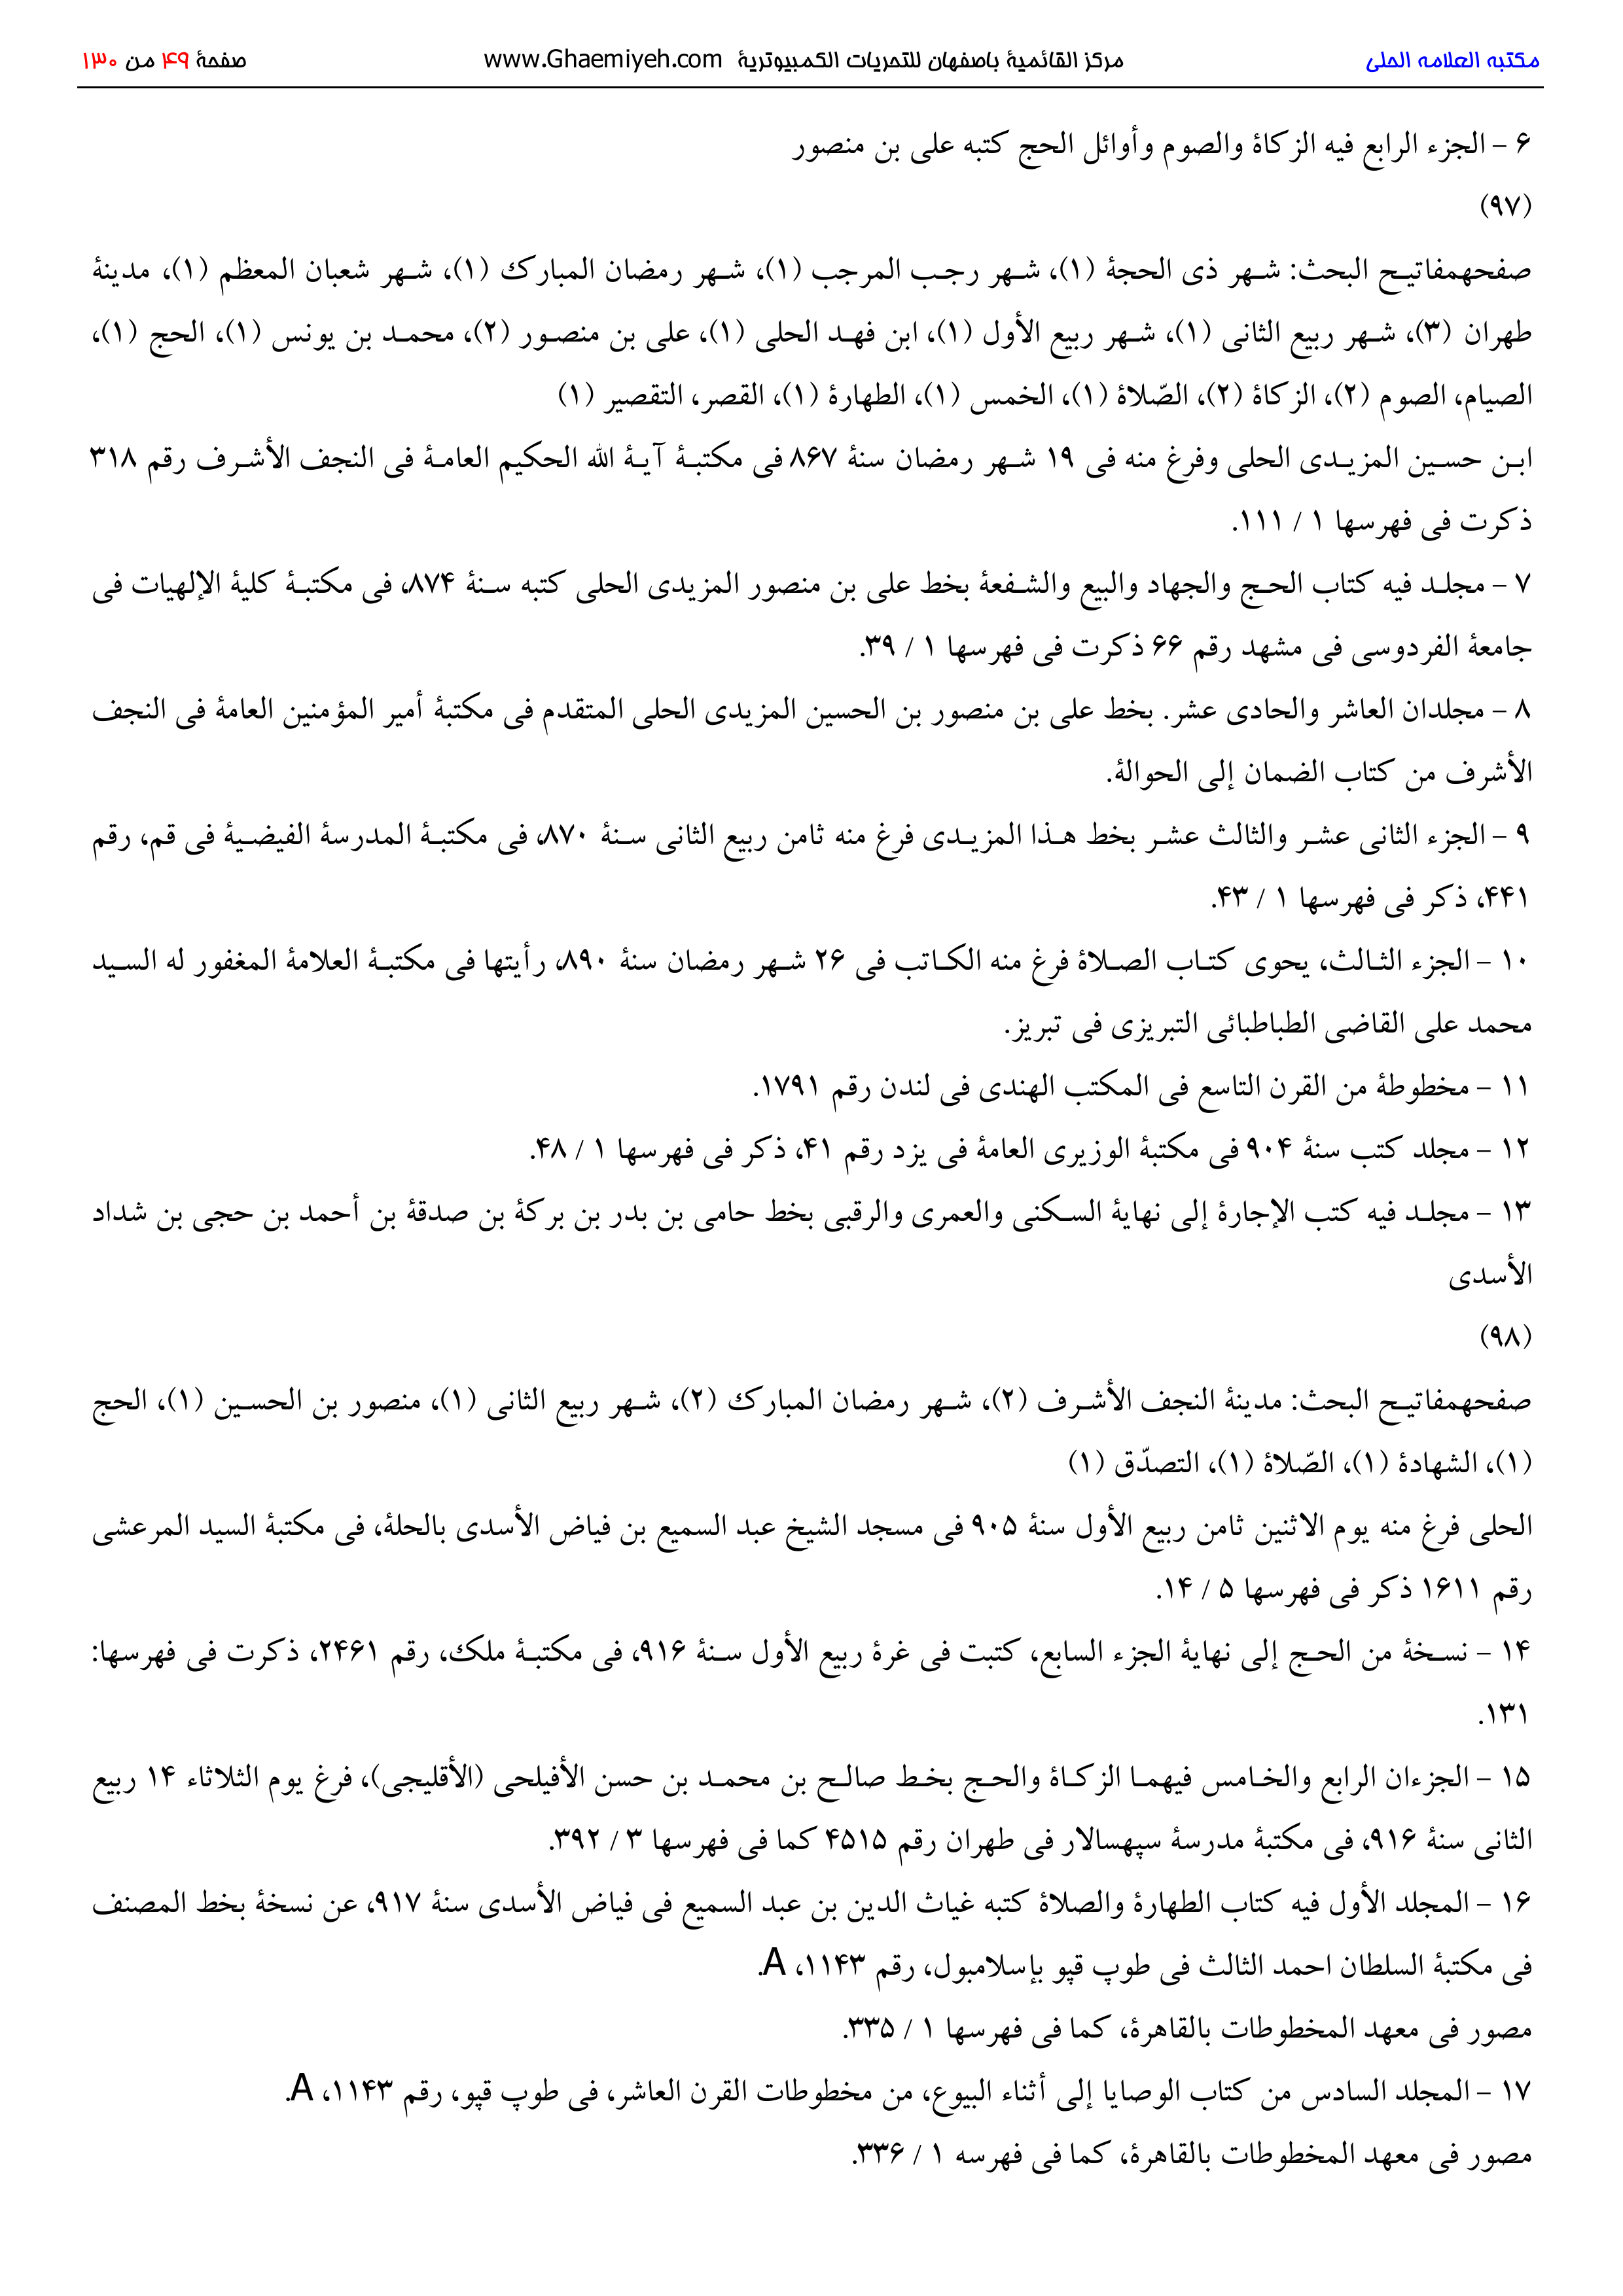 مكتبه العلامه الحلى مركز القائمیة باصفهان للتحریات الکمبیوتریة www.Ghaemiyeh.com صفحة ۴۹ من ۱۳۰
۶ - الجزء الرابع فیه الزکاة والصوم وأوائل الحج کتبه علی بن منصور
(۹۷)
صفحهمفاتیح البحث: شهر ذی الحجة (۱)، شهر رجب المرجب (۱)، شهر رمضان المبارک (۱)، شهر شعبان المعظم (۱)، مدینة
طهران (۳)، شهر ربیع الثانی (۱)، شهر ربیع الأول (۱)، ابن فهد الحلی (۱)، علی بن منصور (۲)، محمد بن یونس (۱)، الحج (۱)،
الصیام، الصوم (۲)، الزکاة (۲)، الصّلاة (۱)، الخمس (۱)، الطهارة (۱)، القصر، التقصیر (۱)
ابن حسین المزیدی الحلی وفرغ منه فی ۱۹ شهر رمضان سنة ۸۶۷ فی مکتبة آیة الله الحکیم العامة فی النجف الأشرف رقم ۳۱۸
ذکرت فی فهرسها ۱ / ۱۱۱.
۷ - مجلد فیه کتاب الحج والجهاد والبیع والشفعة بخط علی بن منصور المزیدی الحلی کتبه سنة ۸۷۴، فی مکتبة کلیة الإلهیات فی
جامعة الفردوسی فی مشهد رقم ۶۶ ذکرت فی فهرسها ۱ / ۳۹.
۸ - مجلدان العاشر والحادی عشر. بخط علی بن منصور بن الحسین المزیدی الحلی المتقدم فی مکتبة أمیر المؤمنین العامة فی النجف
الأشرف من کتاب الضمان إلی الحوالة.
۹ - الجزء الثانی عشر والثالث عشر بخط هذا المزیدی فرغ منه ثامن ربیع الثانی سنة ۸۷۰، فی مکتبة المدرسة الفیضیة فی قم، رقم
۴۴۱، ذکر فی فهرسها ۱ / ۴۳.
۱۰ - الجزء الثالث، یحوی کتاب الصلاة فرغ منه الکاتب فی ۲۶ شهر رمضان سنة ۸۹۰، رأیتها فی مکتبة العلامة المغفور له السید
محمد علی القاضی الطباطبائی التبریزی فی تبریز.
۱۱ - مخطوطة من القرن التاسع فی المکتب الهندی فی لندن رقم ۱۷۹۱.
۱۲ - مجلد کتب سنة ۹۰۴ فی مکتبة الوزیری العامة فی یزد رقم ۴۱، ذکر فی فهرسها ۱ / ۴۸.
۱۳ - مجلد فیه کتب الإجارة إلی نهایة السکنی والعمری والرقبی بخط حامی بن بدر بن برکة بن صدقة بن أحمد بن حجی بن شداد
الأسدی
(۹۸)
صفحهمفاتیح البحث: مدینة النجف الأشرف (۲)، شهر رمضان المبارک (۲)، شهر ربیع الثانی (۱)، منصور بن الحسین (۱)، الحج
(۱)، الشهادة (۱)، الصّلاة (۱)، التصدّق (۱)
الحلی فرغ منه یوم الاثنین ثامن ربیع الأول سنة ۹۰۵ فی مسجد الشیخ عبد السمیع بن فیاض الأسدی بالحلة، فی مکتبة السید المرعشی
رقم ۱۶۱۱ ذکر فی فهرسها ۵ / ۱۴.
۱۴ - نسخة من الحج إلی نهایة الجزء السابع، کتبت فی غرة ربیع الأول سنة ۹۱۶، فی مکتبة ملک، رقم ۲۴۶۱، ذکرت فی فهرسها:
۱۳۱.
۱۵ - الجزءان الرابع والخامس فیهما الزکاة والحج بخط صالح بن محمد بن حسن الأفیلحی (الأقلیجی)، فرغ یوم الثلاثاء ۱۴ ربیع
الثانی سنة ۹۱۶، فی مکتبة مدرسة سپهسالار فی طهران رقم ۴۵۱۵ کما فی فهرسها ۳ / ۳۹۲.
۱۶ - المجلد الأول فیه کتاب الطهارة والصلاة کتبه غیاث الدین بن عبد السمیع فی فیاض الأسدی سنة ۹۱۷، عن نسخة بخط المصنف
فی مکتبة السلطان احمد الثالث فی طوپ قپو بإسلامبول، رقم ۱۱۴۳، A.
مصور فی معهد المخطوطات بالقاهرة، کما فی فهرسها ۱ / ۳۳۵.
۱۷ - المجلد السادس من کتاب الوصایا إلی أثناء البیوع، من مخطوطات القرن العاشر، فی طوپ قپو، رقم ۱۱۴۳، A.
مصور فی معهد المخطوطات بالقاهرة، کما فی فهرسه ۱ / ۳۳۶.